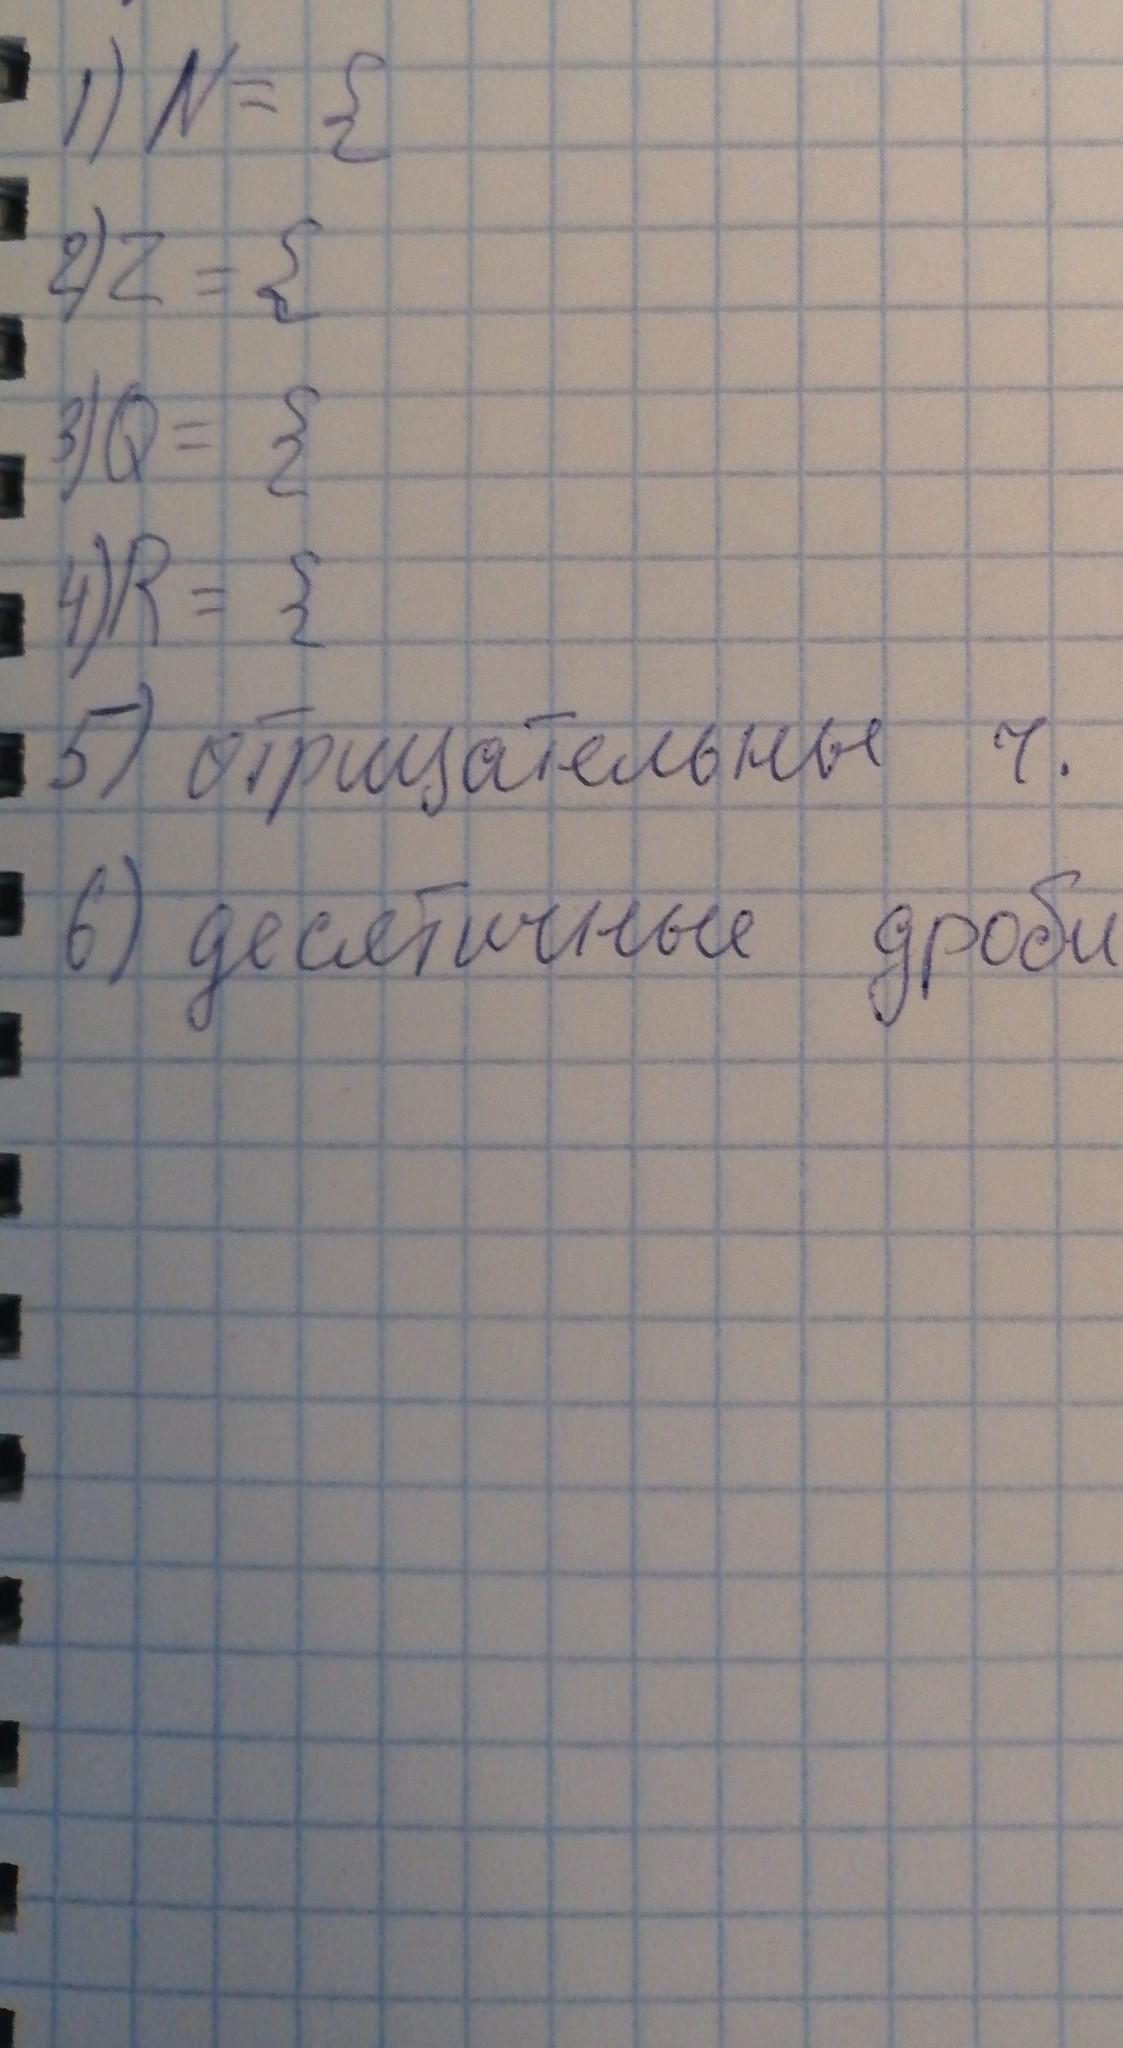 1) N = {
2) Z = {
3) Q = {
4) R = {
5) отрицательные ч.
6) десятичные дроби